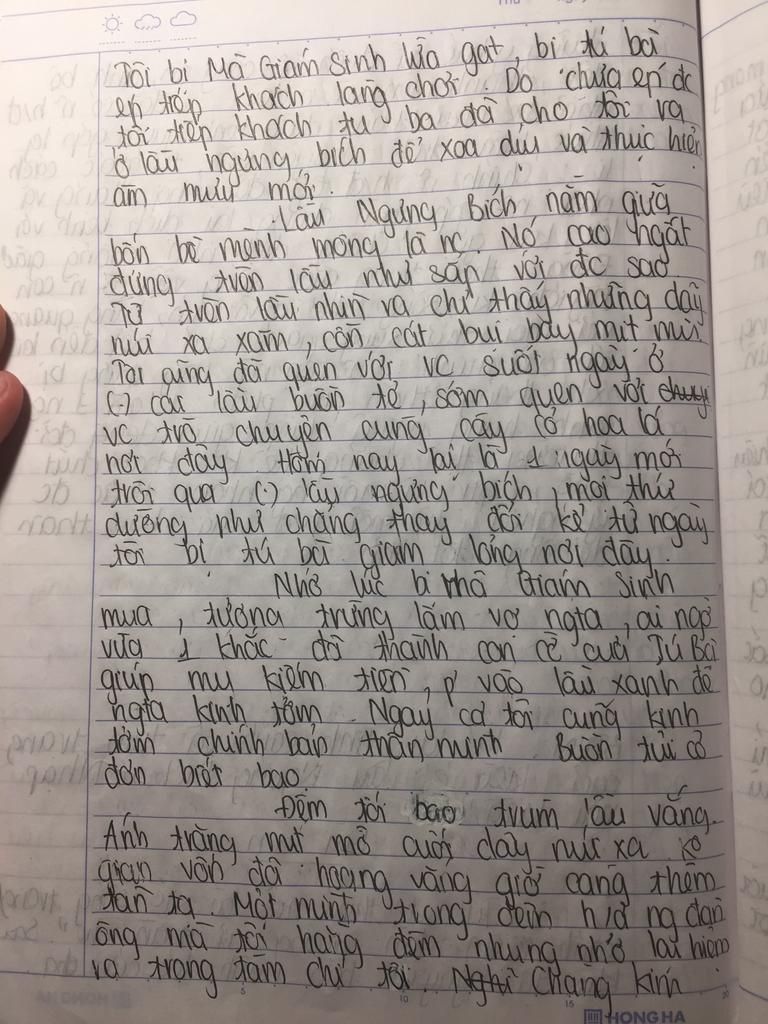 Tôi bị Mã Giám Sinh lừa gạt, bị tú bà
ép tiếp khách làng chơi. Do chưa ép đc
tôi tiếp khách tú bà đã cho tôi ra
ở lầu ngưng bích để xoa dịu và thực hiện
âm mưu mới.
Lầu Ngưng Bích nằm giữa
bốn bề mênh mông là nc. Nó cao ngất
đứng trên lầu như sắp với đc sao
Từ trên lầu nhìn ra chỉ thấy những dãy
núi xa xăm, cồn cát bụi bay mịt mù.
Tôi cũng đã quen với vc suốt ngày ở
(.) cái lầu buồn tẻ, sớm quen với
vc trò chuyện cùng cây cỏ hoa lá
nơi đây. Hôm nay lại là 1 ngày mới
trôi qua (.) lầu ngưng bích, mọi thứ
dường như chẳng thay đổi kể từ ngày
tôi bị tú bà giam lỏng nơi đây.
Nhớ lúc bị Mã Giám Sinh
mua, tưởng trừng làm vợ ngta, ai ngờ
vừa 1 khắc đã thành con cờ cuả Tú Bà
giúp mụ kiếm tiền, p vào lầu xanh để
ngta kinh tởm. Ngay cả tôi cũng kinh
tởm chính bản thân mình. Buồn tủi cô
đơn biết bao.
Đêm tối bao trùm lầu vắng.
Ánh trăng mờ cuối dãy núi xa. ko
gian vốn đã hoang vắng giờ càng thêm
tàn tạ. Một mình trong đêm
ông mà tôi hằng đêm nhung nhớ lại hiện
ra trong tâm chí tôi. Nghĩ Chàng kim
HONG HA